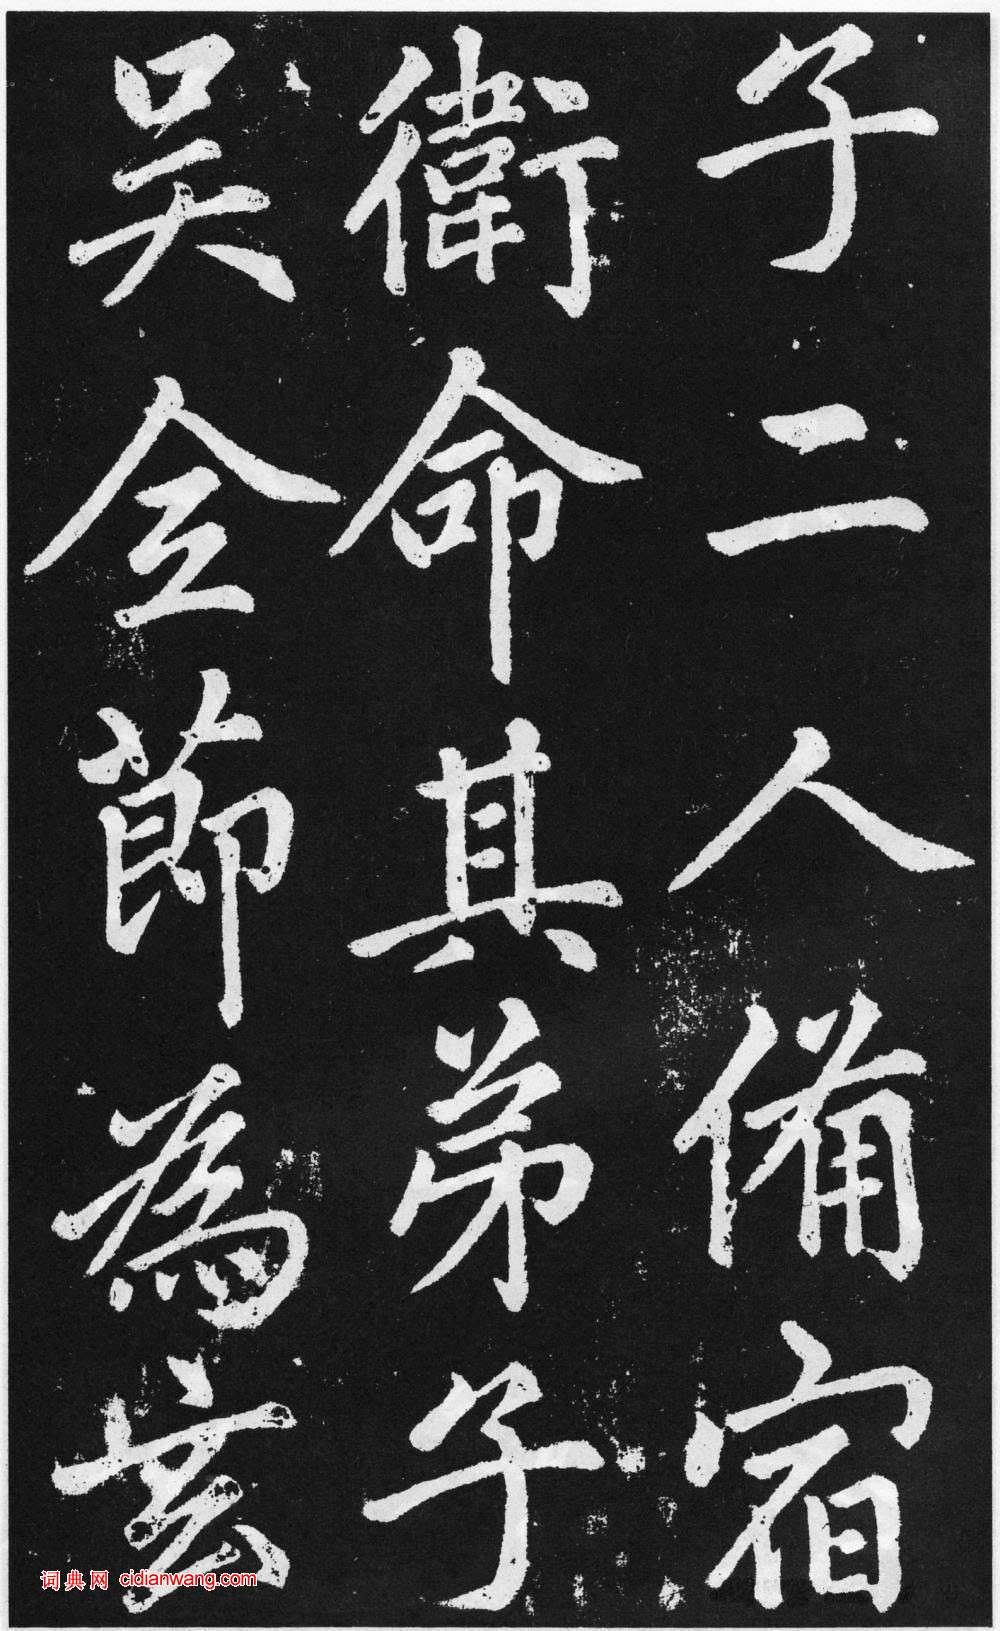 子二人備宿
衛命其弟子
吴全節為玄
词典网 cidianwang.com